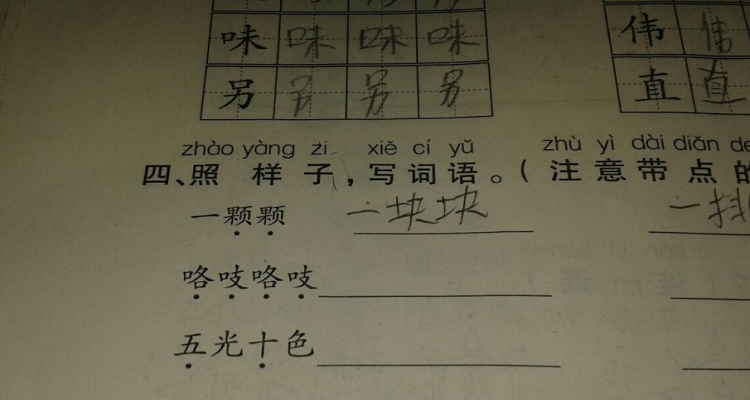 味 味 味 味 伟 伟
另 另 另 另 直 直
zhào yàng zi xiě cí yǔ zhù yì dài diǎn de
四、照样子,写词语。(注意带点的
一颗颗 一块块 一排
咯吱咯吱
五光十色